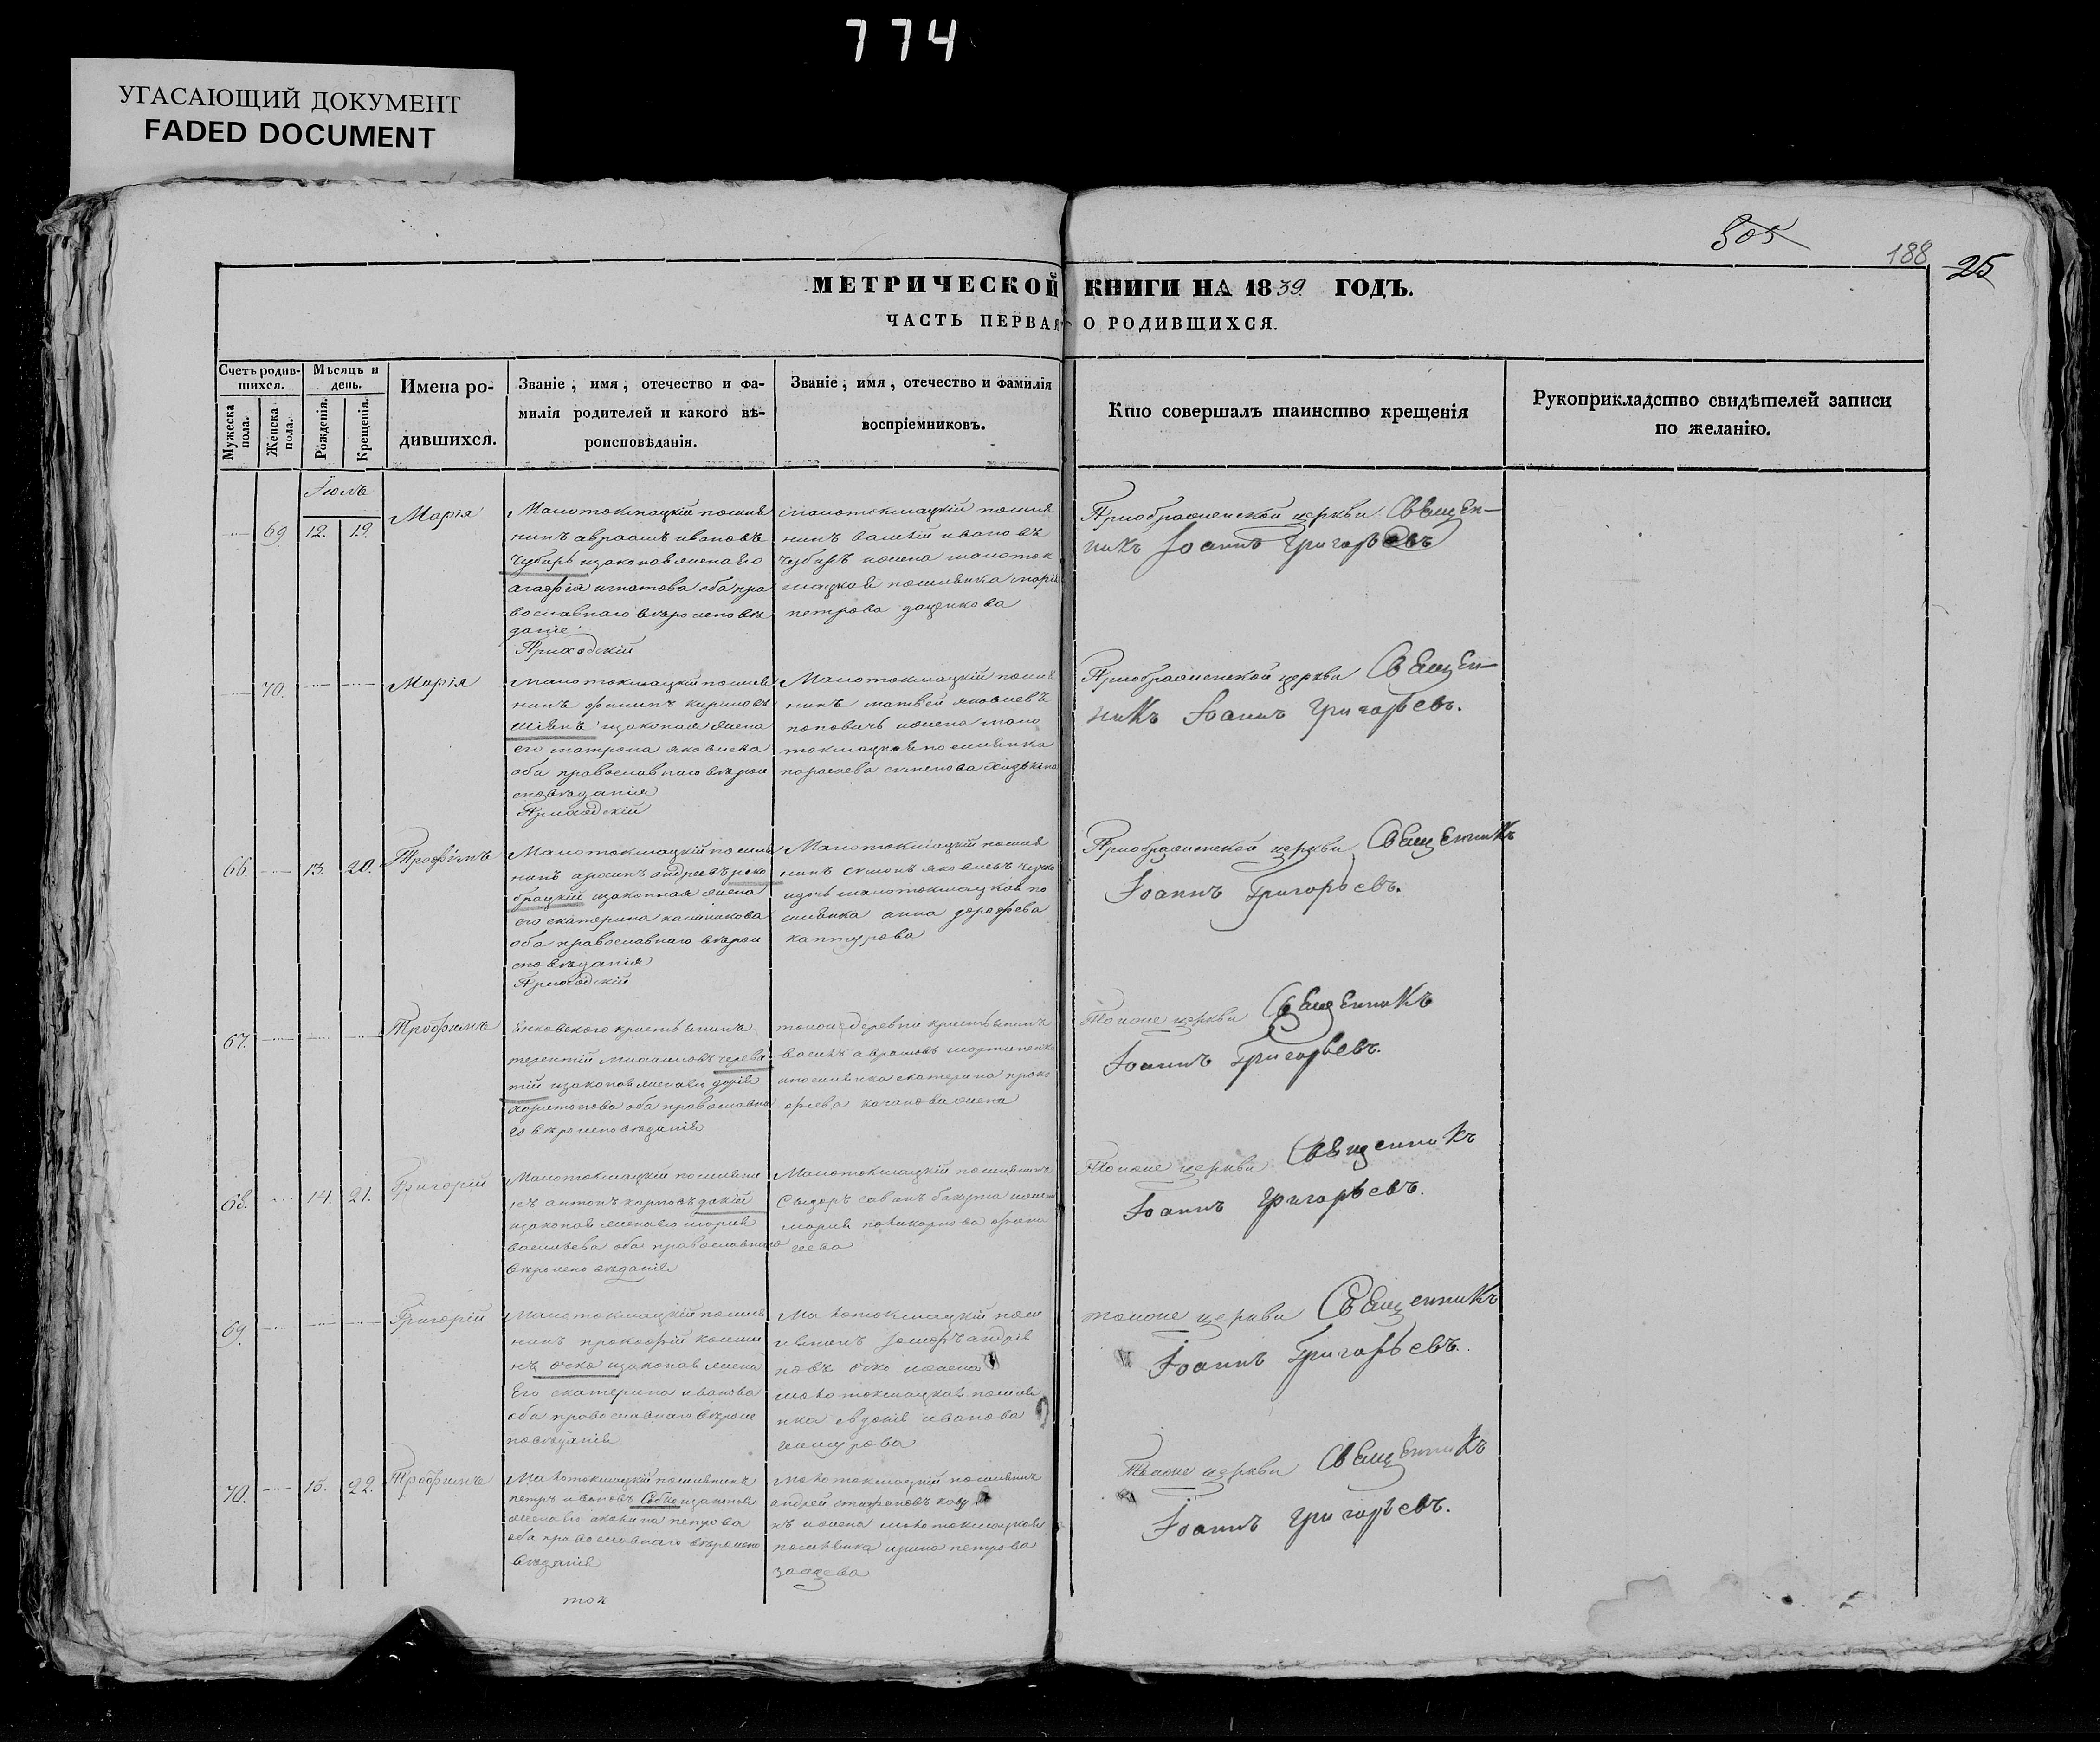 774
УГАСАЮЩИЙ ДОКУМЕНТ
FADED DOCUMENT
505
188
25
МЕТРИЧЕСКОЙ КНИГИ НА 1839 ГОДЪ.
ЧАСТЬ ПЕРВАЯ О РОДИВШИХСЯ.
Счетъ родив-
шихся.
Мужеска
пола.
Женска
пола.
Мѣсяцъ и
день.
Рожденія.
Крещенія.
Имена ро-
дившихся.
Званіе, имя, отечество и фа-
милія родителей и какого вѣ-
роисповѣданія.
Званіе, имя, отечество и фамилія
воспріемниковъ.
Кто совершалъ таинство крещенія
Рукоприкладство свидѣтелей записи
по желанію.
Іюль
69 12. 19.
Марія
Малотокмацкій поселя
нинъ авраамъ ивановъ
Чубарь изаконая жена его
агафія игнатова оба пра
вославнаго вѣроисповѣ
даніе
Приходскій
малотокмацкій поселя
нинъ василій ивановъ
чубиръ ижена малоток
мацкая поселянка марія
петрова даценкова
Приображенской церкви Священ-
никъ Іоаннъ Григорьевъ
70.
Марія
малотокмацкій поселя
нинъ филипъ кириловъ
изаконая жена
его матрона яковлева
оба православнаго вѣрои
сповѣданія
Приходскій
Малотокмацкій поселя
нинъ матвей яковлевъ
поповичъ ижена мало
токмацкая поселянка
параскева семенова
Приображенской церкви Священ-
никъ Іоаннъ Григорьевъ.
66. 13. 20.
Трофімъ
Малотокмацкій поселя
нинъ осипъ андреевъ реко
брацкій изаконная жена
его екатерина калиникова
оба православнаго вѣрои
сповѣданія
Приходскій
Малотокмацкій поселя
нинъ семонъ яковлевъ
малотокмацкая по
селянка анна дорофева
каптурова
Приображенской церкви Священникъ
Іоаннъ Григорьевъ.
67.
Трофимъ
крестьянина
терентій михаиловъ черева
тій изаконая жена его дарія
харитонова оба православна
го вѣроисповѣданія
тоиже деревни крестьянинъ
василъ абрамовъ мартиненко
ипоселянка екатерина проко
фіева качанова жена
Тоиже церкви Священникъ
Іоаннъ Григорьевъ.
68. 14. 21.
Григорій
Малотокмацкій поселяни
нъ антонъ карповъ дакій
изаконая жена его марія
василъева оба православнаго
вѣроисповѣданія
Малотокмацкій поселянинъ
Сыдоръ савинъ бакута ижена
марія поликарпова
Тоиже церкви Священникъ
Іоаннъ Григорьевъ.
69.
Григорій
Малотокмацкій поселя
нинъ прокофій косми
нъ очко изаконая жена
Его екатерина иванова
оба православнаго вѣроис
повѣданія
Малотокмацкій посе
лянинъ
очко ижена
малотокмацкая поселя
нка евдокія иванова
тоиже церкви Священникъ
Іоаннъ Григорьевъ.
70. 15. 22.
Трофимъ
Малотокмацкій поселянинъ
петръ ивановъ Собко изаконая
жена его акилина петрова
оба православнаго вѣроиспо
вѣданія
малотокмацкій поселянинъ
андрей стефановъ
ижена малотокмацкая
поселянка ирина петрова
заицева
Тоиже церкви Священникъ
Іоаннъ Григорьевъ.
ток